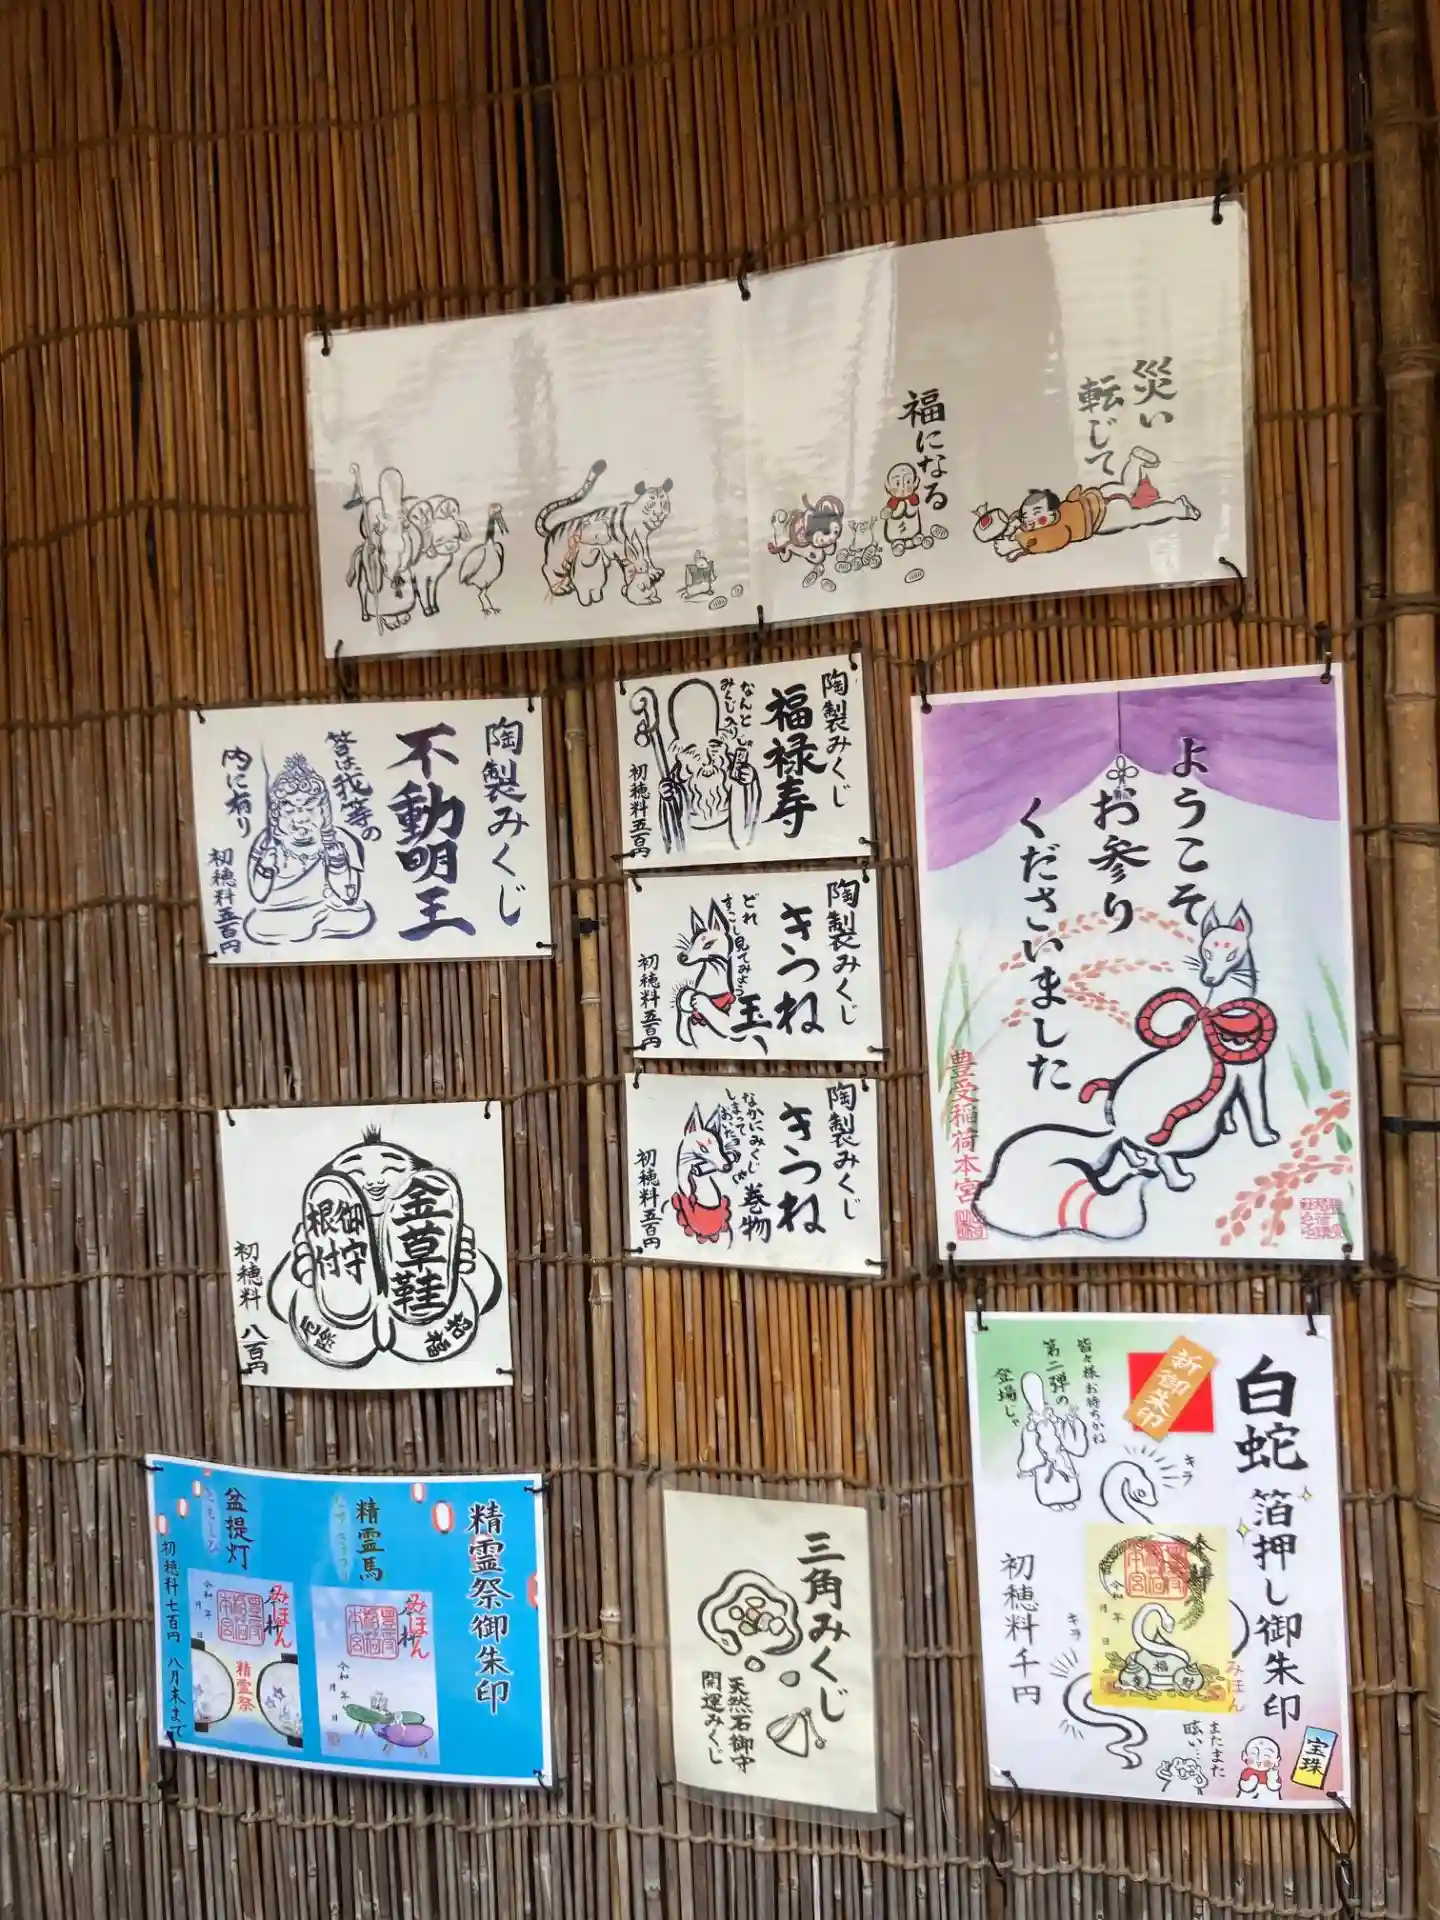 災い
転じて
福になる
陶製みくじ
不動明王
答は我等の
内に有り
初穂料五百円
陶製みくじ
福禄寿
なんと
みくじ入りじゃ
初穂料五百円
陶製みくじ
きつね
玉
どれ
すこし見てみよう
初穂料五百円
陶製みくじ
きつね
巻物
なかにみくじ
しまって
おいた
初穂料五百円
ようこそ
お参り
くださいました
豊受稲荷本宮
金草鞋
御守
根付
招福
初穂料 八百円
精霊祭御朱印
精霊馬
みほん
令和 年 月 日
盆提灯
ともしび
みほん
精霊祭
令和 年 月 日
初穂料七百円 八月末まで
三角みくじ
天然石御守
開運みくじ
白蛇 箔押し御朱印
新御朱印
皆々様お待ちかね
第二弾の
登場じゃ
キラ
奉拝
令和 年 月 日
福
みほん
キラ
初穂料千円
またまた
眩い…
宝珠